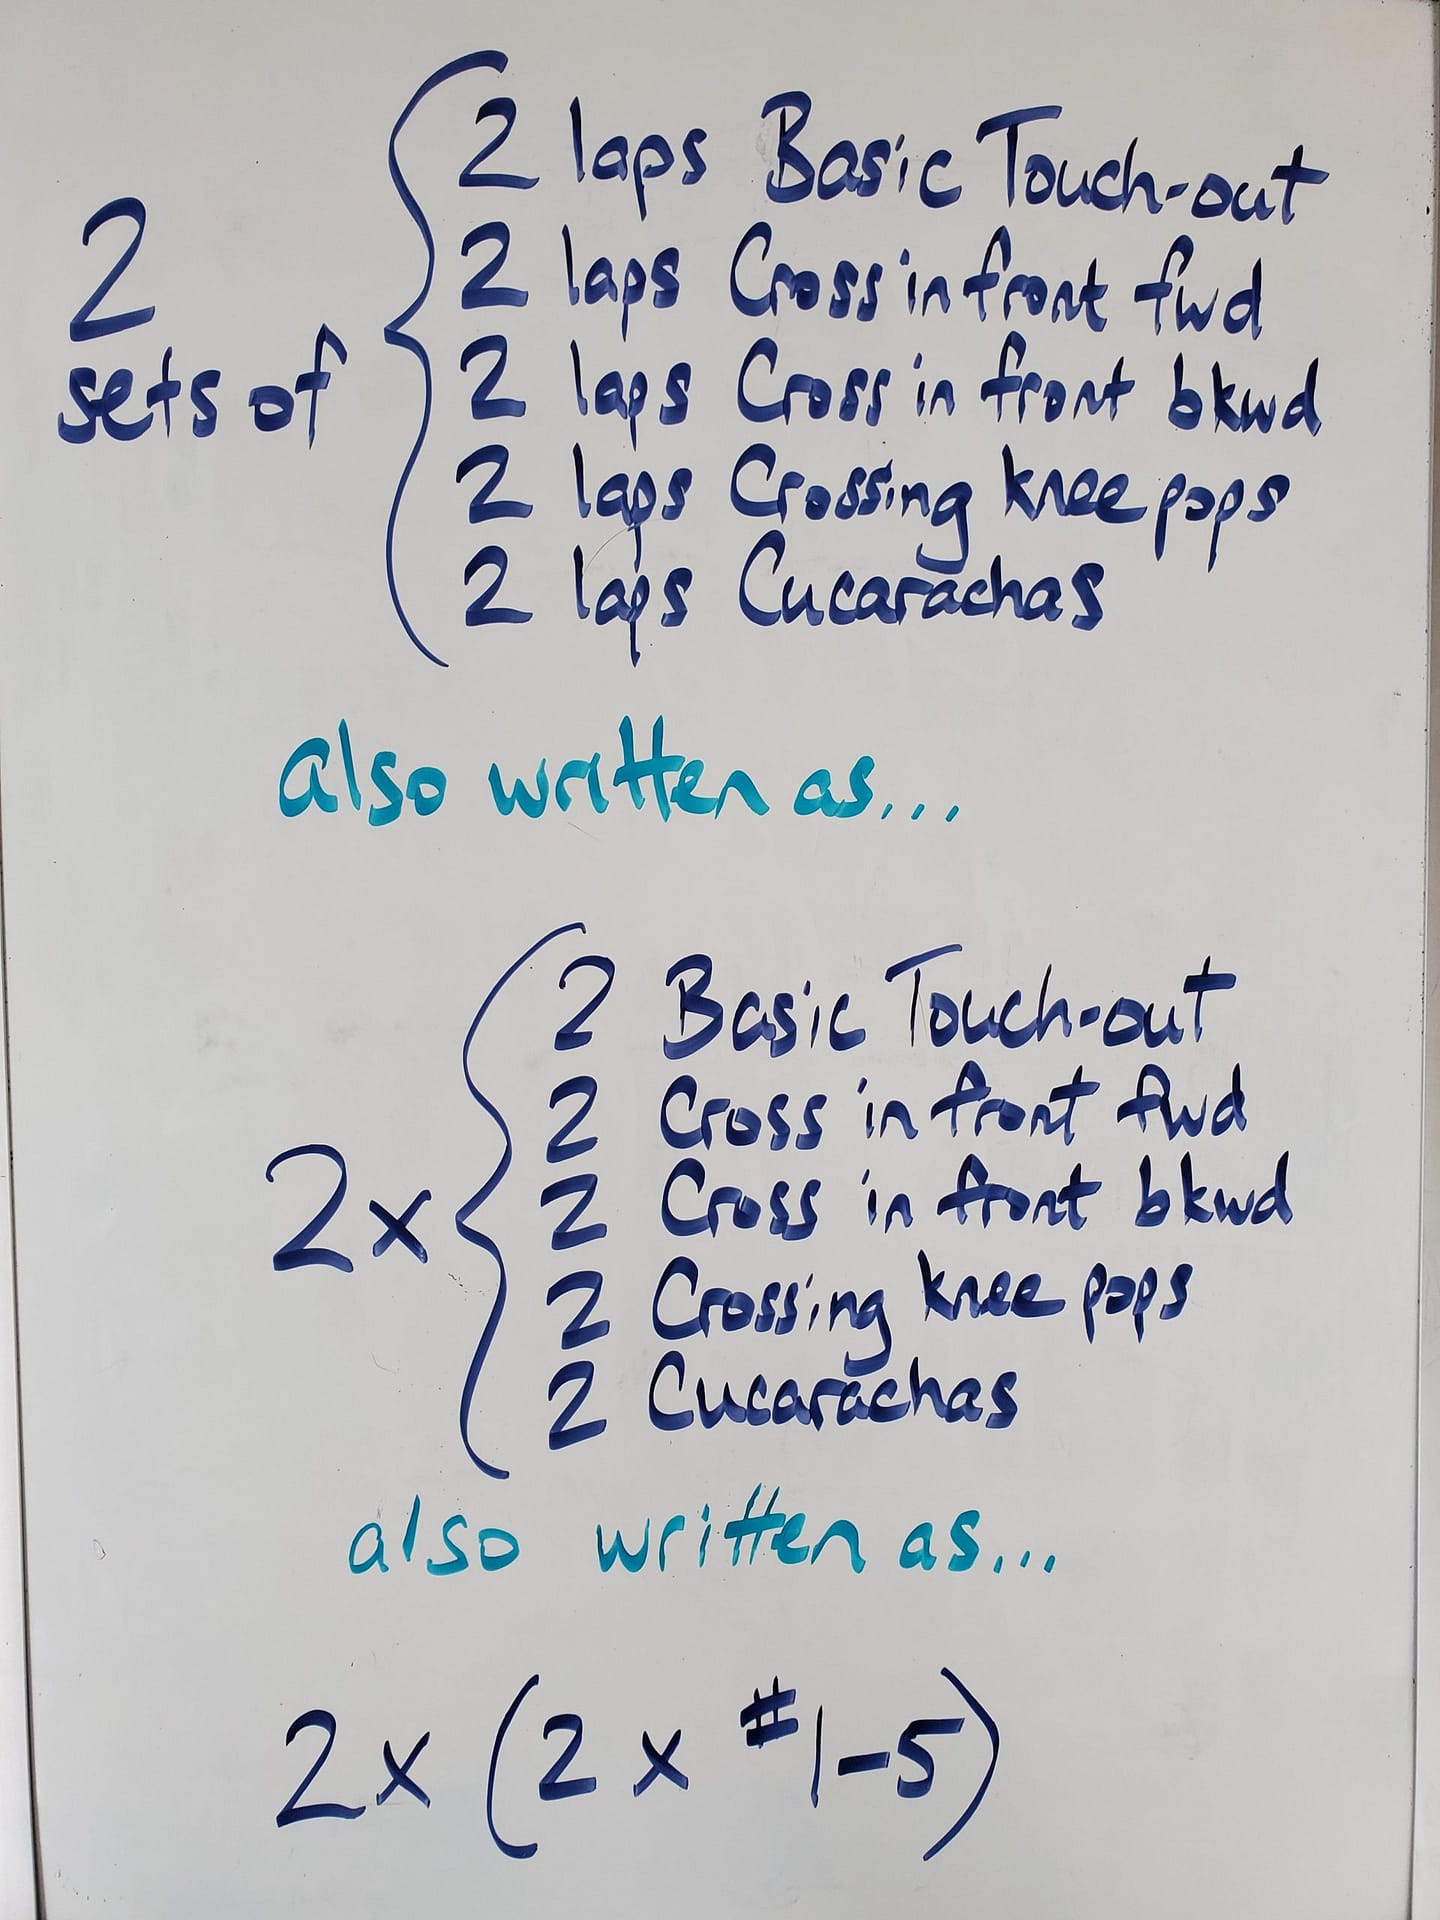 2 sets of
2 laps Basic Touch-out
2 laps Cross in front fwd
2 laps Cross in front bkwd
2 laps Crossing knee pops
2 laps Cucarachas
also written as...
2x
2 Basic Touch-out
2 Cross in front fwd
2 Cross in front bkwd
2 Crossing knee pops
2 Cucarachas
also written as...
2x (2 x #1-5)